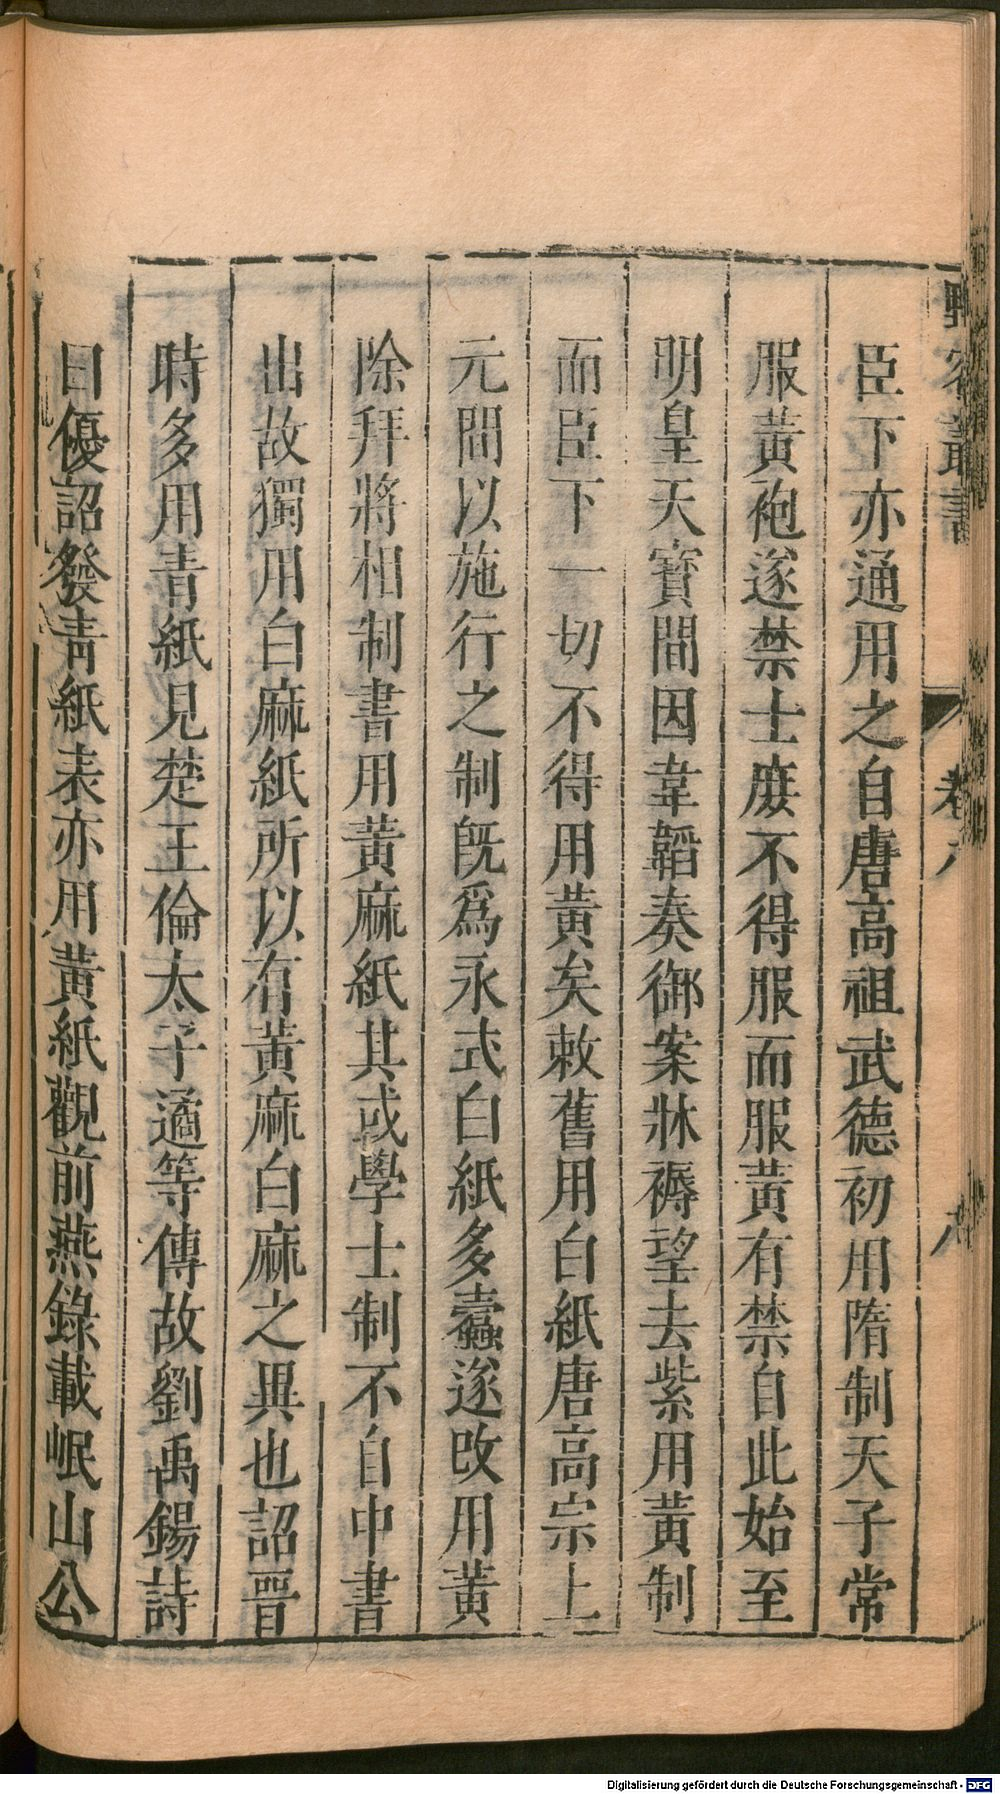 野客叢書
卷八
八
臣下亦通用之自唐高祖武德初用隋制天子常
服黃袍遂禁士庶不得服而服黃有禁自此始至
明皇天寶間因韋韜奏御案牀褥望去紫用黃制
而臣下一切不得用黃矣敕舊用白紙唐高宗上
元間以施行之制既爲永式白紙多蠹遂改用黃
除拜將相制書用黃麻紙其或學士制不自中書
出故獨用白麻紙所以有黃麻白麻之異也詔晉
時多用青紙見楚王倫太子遹等傳故劉禹錫詩
曰優詔發青紙表亦用黃紙觀前燕錄載岷山公
Digitalisierung gefördert durch die Deutsche Forschungsgemeinschaft - DFG